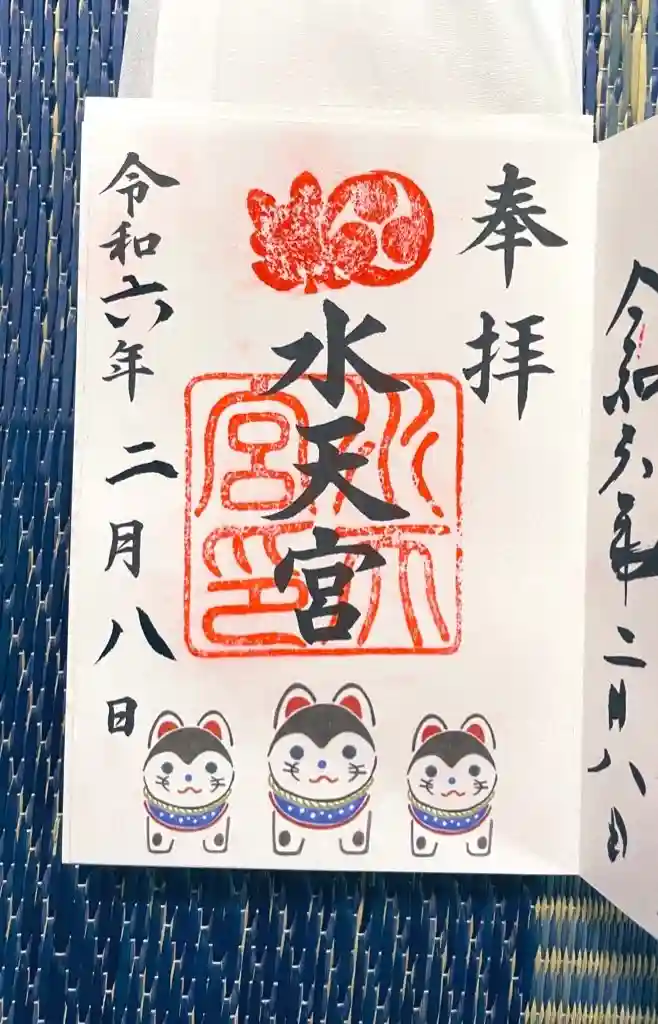 令和六年二月八日
奉拝
水天宮
水天宮印
令和六年二月八日